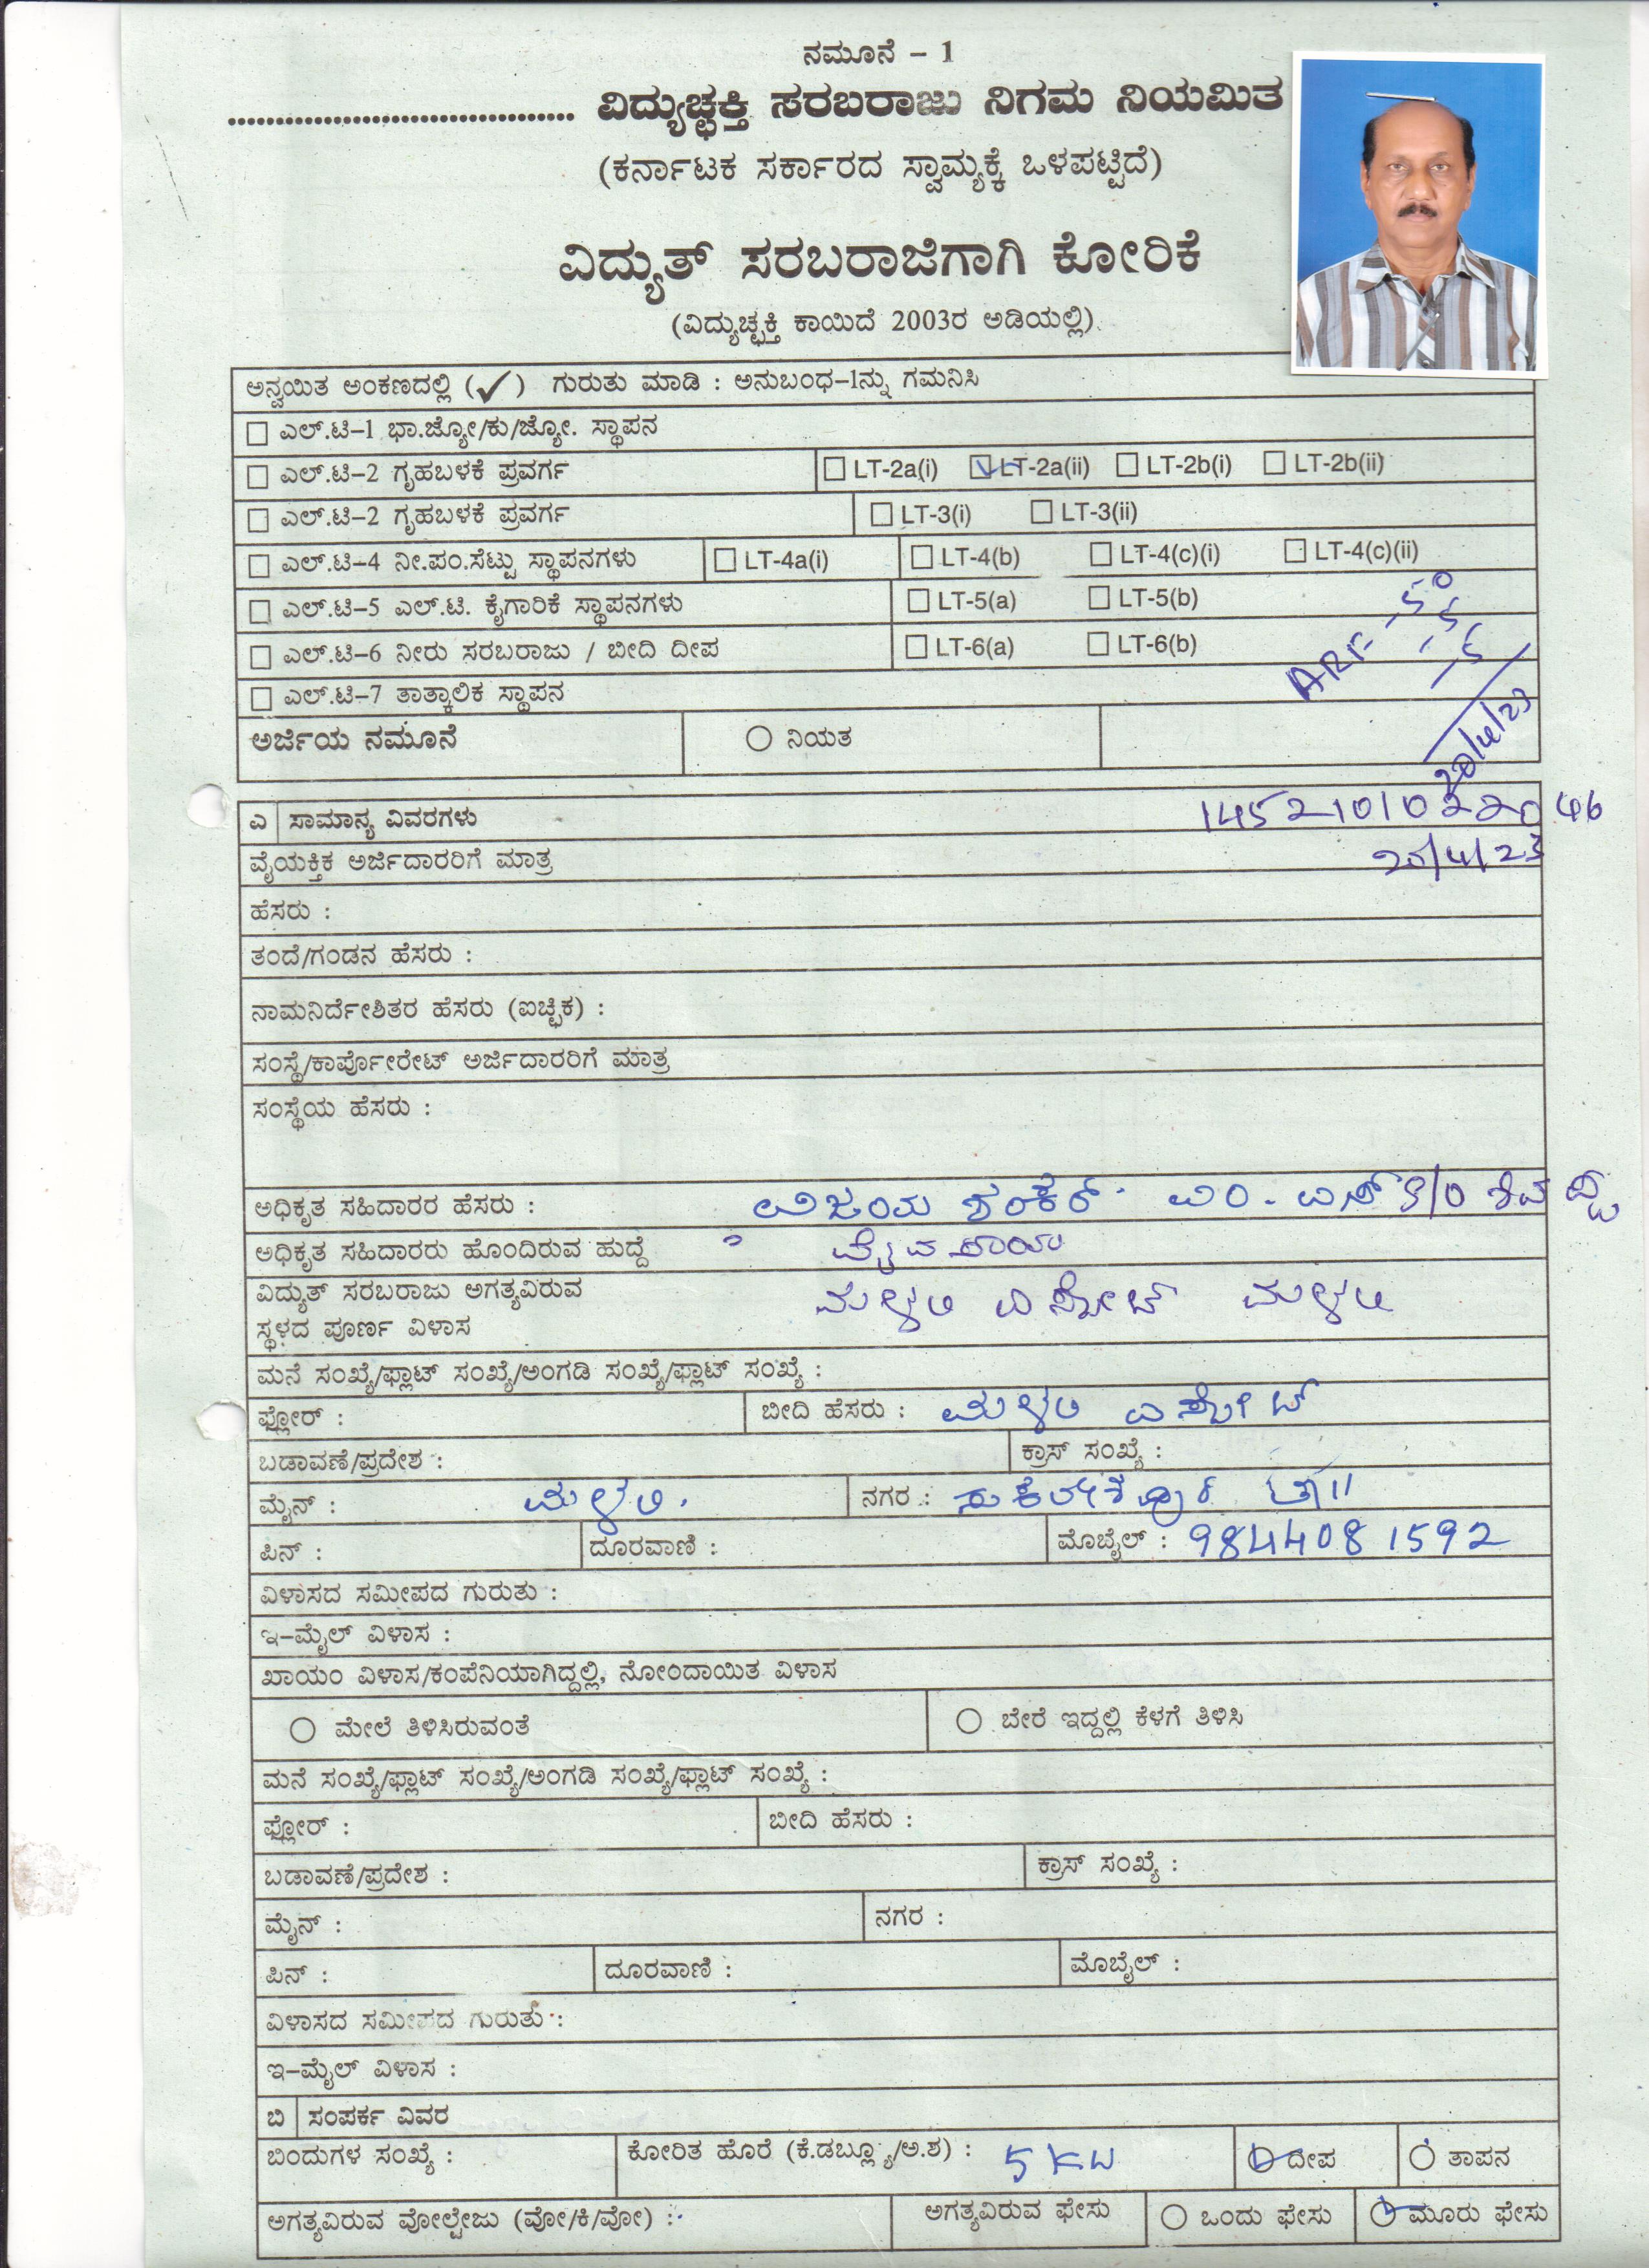 ನಮೂನೆ – 1
.................................... ವಿದ್ಯುಚ್ಛಕ್ತಿ ಸರಬರಾಜು ನಿಗಮ ನಿಯಮಿತ
(ಕರ್ನಾಟಕ ಸರ್ಕಾರದ ಸ್ವಾಮ್ಯಕ್ಕೆ ಒಳಪಟ್ಟಿದೆ)
ವಿದ್ಯುತ್ ಸರಬರಾಜಿಗಾಗಿ ಕೋರಿಕೆ
(ವಿದ್ಯುಚ್ಛಕ್ತಿ ಕಾಯಿದೆ 2003ರ ಅಡಿಯಲ್ಲಿ)
ಅನ್ವಯಿತ ಅಂಕಣದಲ್ಲಿ (✓) ಗುರುತು ಮಾಡಿ : ಅನುಬಂಧ–1ನ್ನು ಗಮನಿಸಿ
ಎಲ್.ಟಿ–1 ಭಾ.ಜ್ಯೋ/ಕು/ಜ್ಯೋ. ಸ್ಥಾಪನ
ಎಲ್.ಟಿ–2 ಗೃಹಬಳಕೆ ಪ್ರವರ್ಗ LT-2a(i) LT-2a(ii) LT-2b(i) LT-2b(ii)
ಎಲ್.ಟಿ–2 ಗೃಹಬಳಕೆ ಪ್ರವರ್ಗ LT-3(i) LT-3(ii)
ಎಲ್.ಟಿ–4 ನೀ.ಪಂ.ಸೆಟ್ಟು ಸ್ಥಾಪನಗಳು LT-4a(i) LT-4(b) LT-4(c)(i) LT-4(c)(ii)
ಎಲ್.ಟಿ–5 ಎಲ್.ಟಿ. ಕೈಗಾರಿಕೆ ಸ್ಥಾಪನಗಳು LT-5(a) LT-5(b)
ಎಲ್.ಟಿ–6 ನೀರು ಸರಬರಾಜು / ಬೀದಿ ದೀಪ LT-6(a) LT-6(b)
ARF - 50
ಎಲ್.ಟಿ–7 ತಾತ್ಕಾಲಿಕ ಸ್ಥಾಪನ
ಅರ್ಜಿಯ ನಮೂನೆ ನಿಯತ
20/4/23
ಎ ಸಾಮಾನ್ಯ ವಿವರಗಳು 1452101022046
ವೈಯಕ್ತಿಕ ಅರ್ಜಿದಾರರಿಗೆ ಮಾತ್ರ 20/4/23
ಹೆಸರು :
ತಂದೆ/ಗಂಡನ ಹೆಸರು :
ನಾಮನಿರ್ದೇಶಿತರ ಹೆಸರು (ಐಚ್ಛಿಕ) :
ಸಂಸ್ಥೆ/ಕಾರ್ಪೊರೇಟ್ ಅರ್ಜಿದಾರರಿಗೆ ಮಾತ್ರ
ಸಂಸ್ಥೆಯ ಹೆಸರು :
ಅಧಿಕೃತ ಸಹಿದಾರರ ಹೆಸರು : ವಿಜಯ ಶಂಕರ್ ಎಂ. ಎಸ್ S/O
ಅಧಿಕೃತ ಸಹಿದಾರರು ಹೊಂದಿರುವ ಹುದ್ದೆ
ವಿದ್ಯುತ್ ಸರಬರಾಜು ಅಗತ್ಯವಿರುವ ಮಳ್ಳಲಿ ಎಸ್ಟೇಟ್ ಮಳ್ಳಲಿ
ಸ್ಥಳದ ಪೂರ್ಣ ವಿಳಾಸ
ಮನೆ ಸಂಖ್ಯೆ/ಫ್ಲಾಟ್ ಸಂಖ್ಯೆ/ಅಂಗಡಿ ಸಂಖ್ಯೆ/ಫ್ಲಾಟ್ ಸಂಖ್ಯೆ :
ಫ್ಲೋರ್ : ಬೀದಿ ಹೆಸರು : ಮಳ್ಳಲಿ ಎಸ್ಟೇಟ್
ಬಡಾವಣೆ/ಪ್ರದೇಶ : ಕ್ರಾಸ್ ಸಂಖ್ಯೆ :
ಮೈನ್ : ಮಳ್ಳಲಿ. ನಗರ : ಸಕಲೇಶಪುರ ತಾ||
ಪಿನ್ : ದೂರವಾಣಿ : ಮೊಬೈಲ್ : 9844081592
ವಿಳಾಸದ ಸಮೀಪದ ಗುರುತು :
ಇ–ಮೈಲ್ ವಿಳಾಸ :
ಖಾಯಂ ವಿಳಾಸ/ಕಂಪೆನಿಯಾಗಿದ್ದಲ್ಲಿ, ನೋಂದಾಯಿತ ವಿಳಾಸ
ಮೇಲೆ ತಿಳಿಸಿರುವಂತೆ ಬೇರೆ ಇದ್ದಲ್ಲಿ ಕೆಳಗೆ ತಿಳಿಸಿ
ಮನೆ ಸಂಖ್ಯೆ/ಫ್ಲಾಟ್ ಸಂಖ್ಯೆ/ಅಂಗಡಿ ಸಂಖ್ಯೆ/ಫ್ಲಾಟ್ ಸಂಖ್ಯೆ :
ಫ್ಲೋರ್ : ಬೀದಿ ಹೆಸರು :
ಬಡಾವಣೆ/ಪ್ರದೇಶ : ಕ್ರಾಸ್ ಸಂಖ್ಯೆ :
ಮೈನ್ : ನಗರ :
ಪಿನ್ : ದೂರವಾಣಿ : ಮೊಬೈಲ್ :
ವಿಳಾಸದ ಸಮೀಪದ ಗುರುತು :
ಇ–ಮೈಲ್ ವಿಳಾಸ :
ಬಿ ಸಂಪರ್ಕ ವಿವರ
ಬಿಂದುಗಳ ಸಂಖ್ಯೆ : ಕೋರಿತ ಹೊರೆ (ಕೆ.ಡಬ್ಲ್ಯೂ/ಅ.ಶ) : 5 KW ದೀಪ ತಾಪನ
ಅಗತ್ಯವಿರುವ ವೋಲ್ಟೇಜು (ವೋ/ಕಿ/ವೋ) : ಅಗತ್ಯವಿರುವ ಫೇಸು ಒಂದು ಫೇಸು ಮೂರು ಫೇಸು